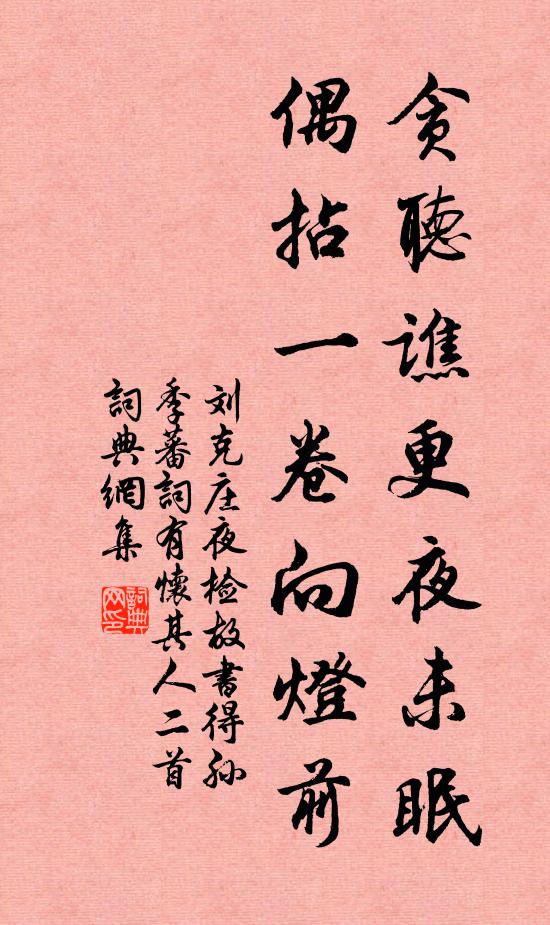 貪聽譙更夜未眠
偶拈一卷向燈前
刘克庄夜检故書得孙
季蕃詞有懷其人二首
詞典網集
詞典
网印